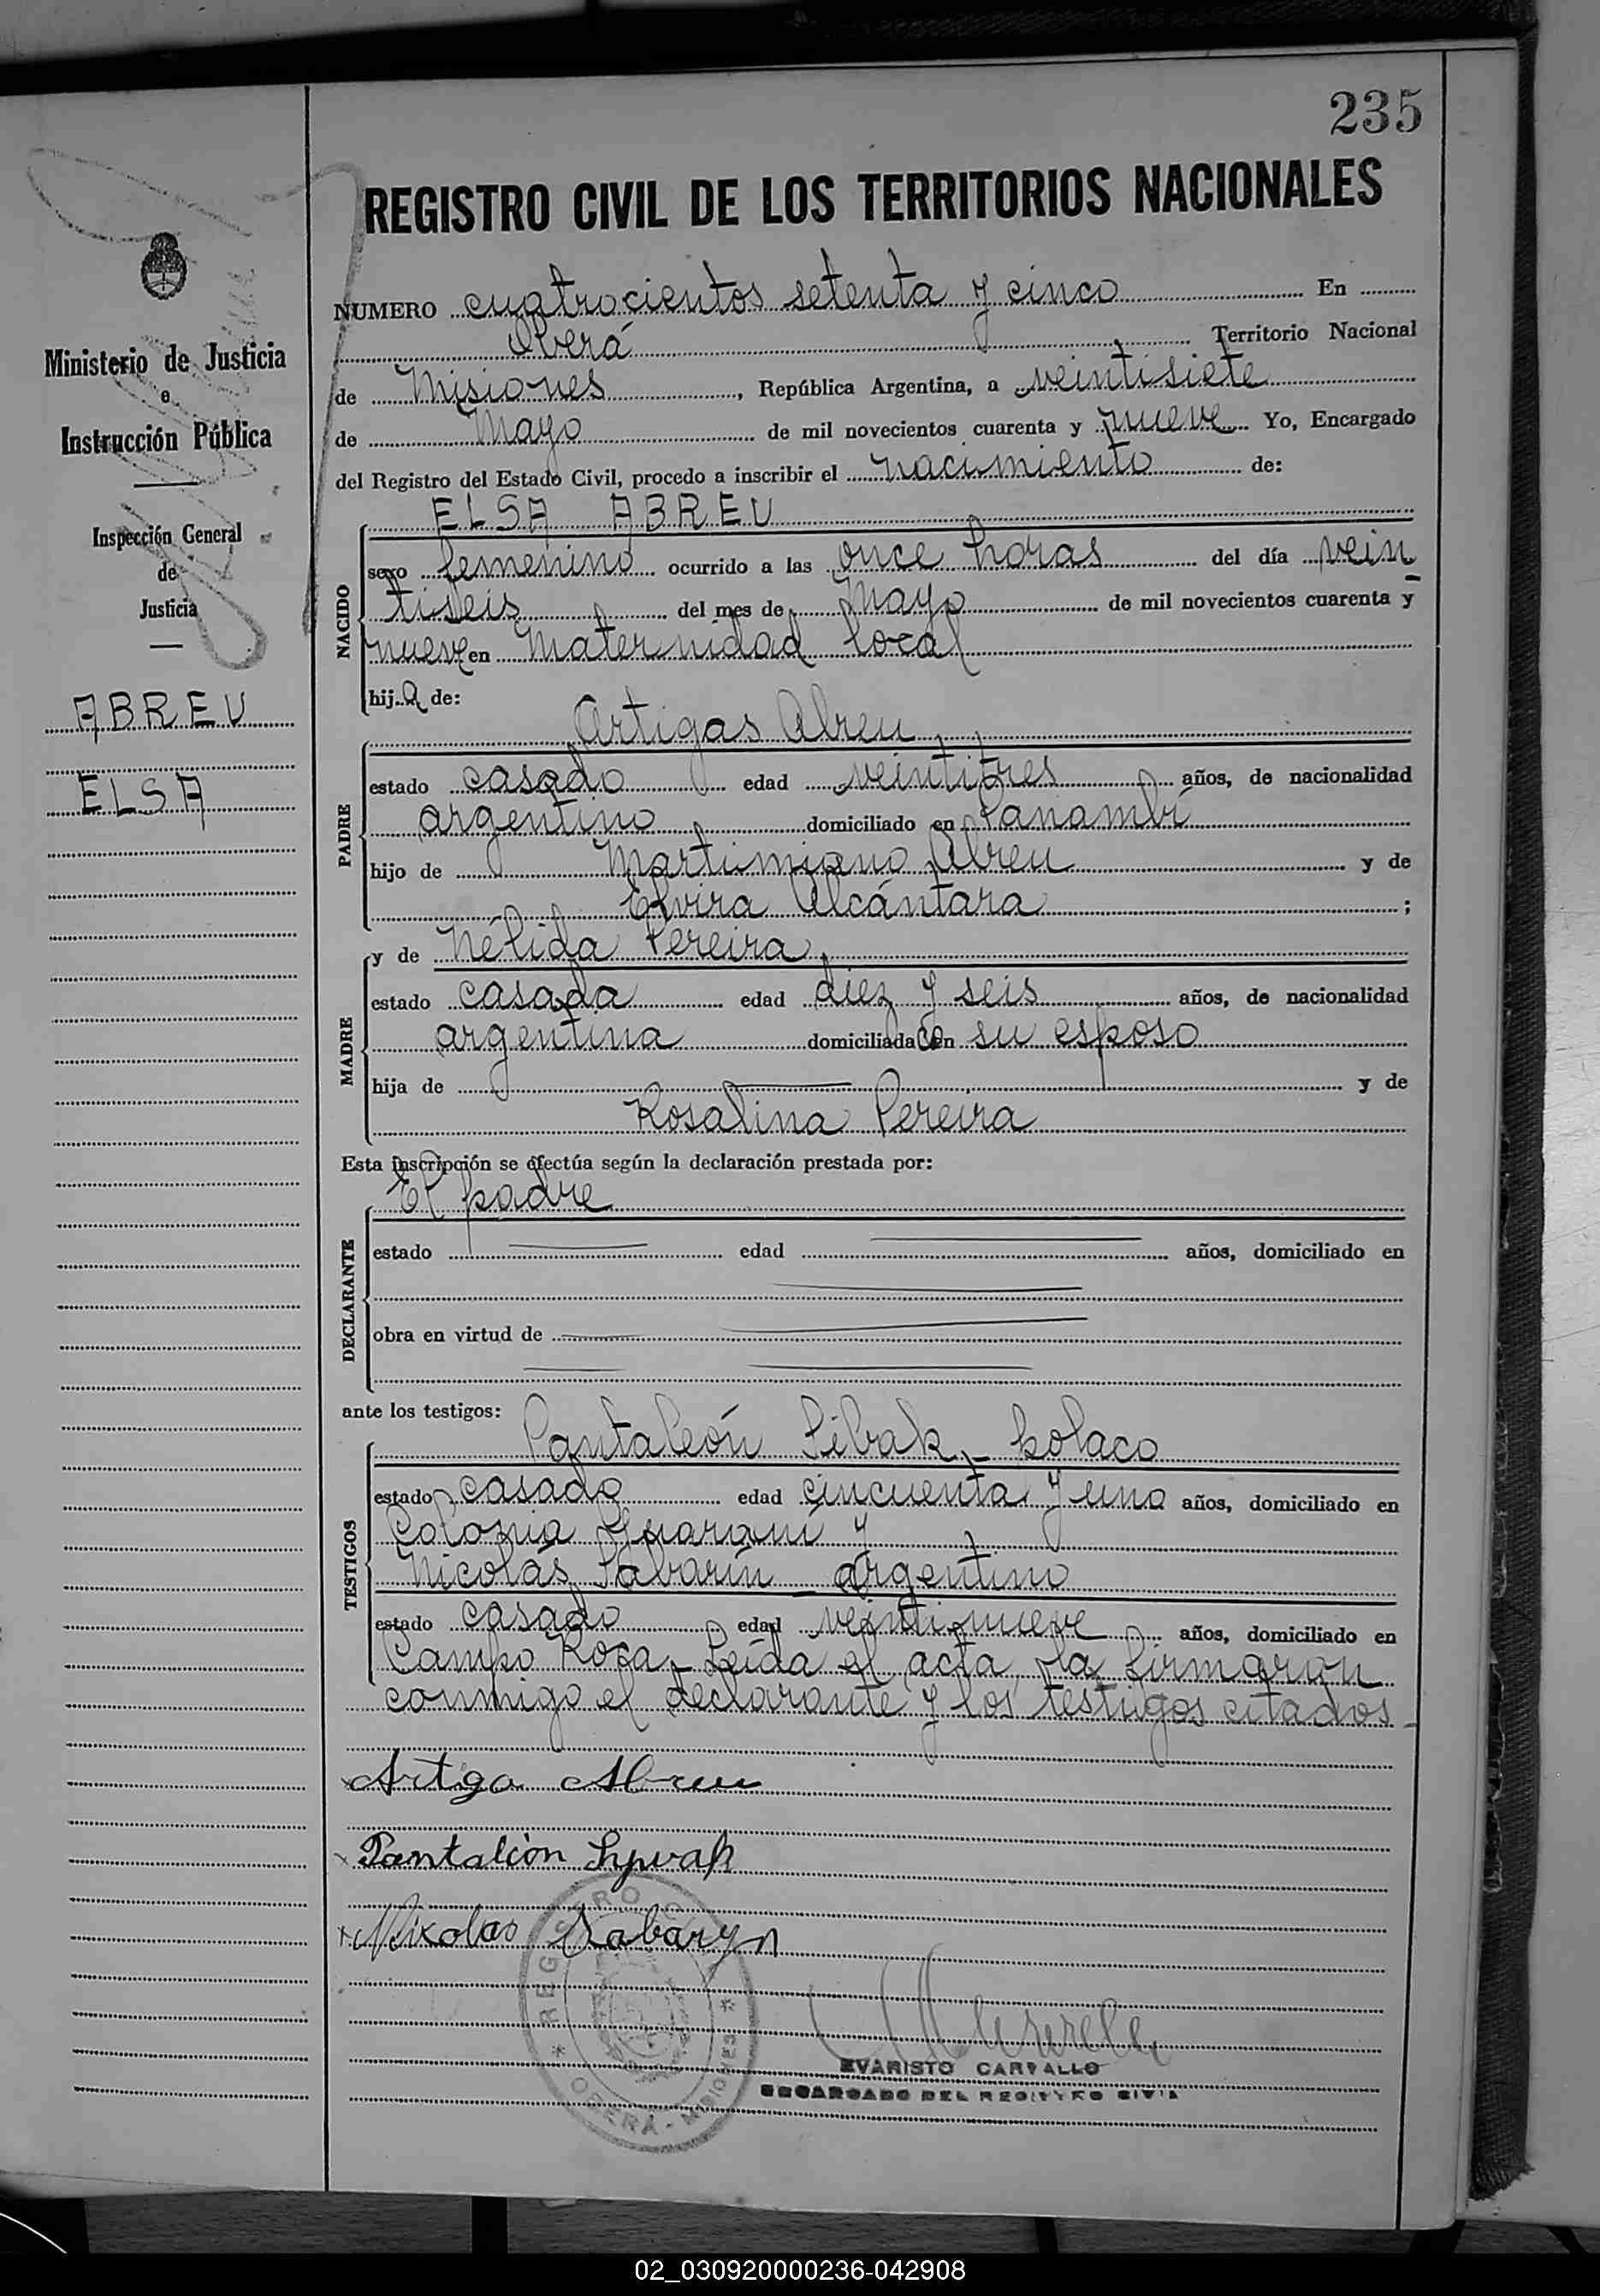 235
REGISTRO CIVIL DE LOS TERRITORIOS NACIONALES
Ministerio de Justicia
e
Instrucción Pública
Inspección General
de
Justicia
ABREU
ELSA
NUMERO cuatrocientos setenta y cinco En
Oberá Territorio Nacional
de Misiones, República Argentina, a veintisiete
de Mayo de mil novecientos cuarenta y nueve Yo, Encargado
del Registro del Estado Civil, procedo a inscribir el nacimiento de:
ELSA ABREU
NACIDO
sexo femenino ocurrido a las once horas del día vein
tiseis del mes de Mayo de mil novecientos cuarenta y
nueve en Maternidad local
hija de:
Artigas Abreu
PADRE
estado casado edad veintitres años, de nacionalidad
argentino domiciliado en Panambí
hijo de Martimiano Abreu y de
Elvira Alcántara ;
y de Nélida Pereira
MADRE
estado casada edad diez y seis años, de nacionalidad
argentina domiciliada con su esposo
hija de y de
Rosalina Pereira
Esta inscripción se efectúa según la declaración prestada por:
El padre
DECLARANTE
estado edad años, domiciliado en
obra en virtud de
ante los testigos:
Pantaleón Sibak - polaco
TESTIGOS
estado casado edad cincuenta y uno años, domiciliado en
Colonia Guaraní y
Nicolás Sabarín - argentino
estado casado edad veintinueve años, domiciliado en
Campo Roca - Leída el acta, la firmaron
conmigo el declarante y los testigos citados -
Artiga Abreu
Pantalión Sywak
Nikolas Sabaryn
REGISTRO
OBERÁ - MISIONES
EVARISTO CARVALLO
ENCARGADO DEL REGISTRO CIVIL
02_030920000236-042908